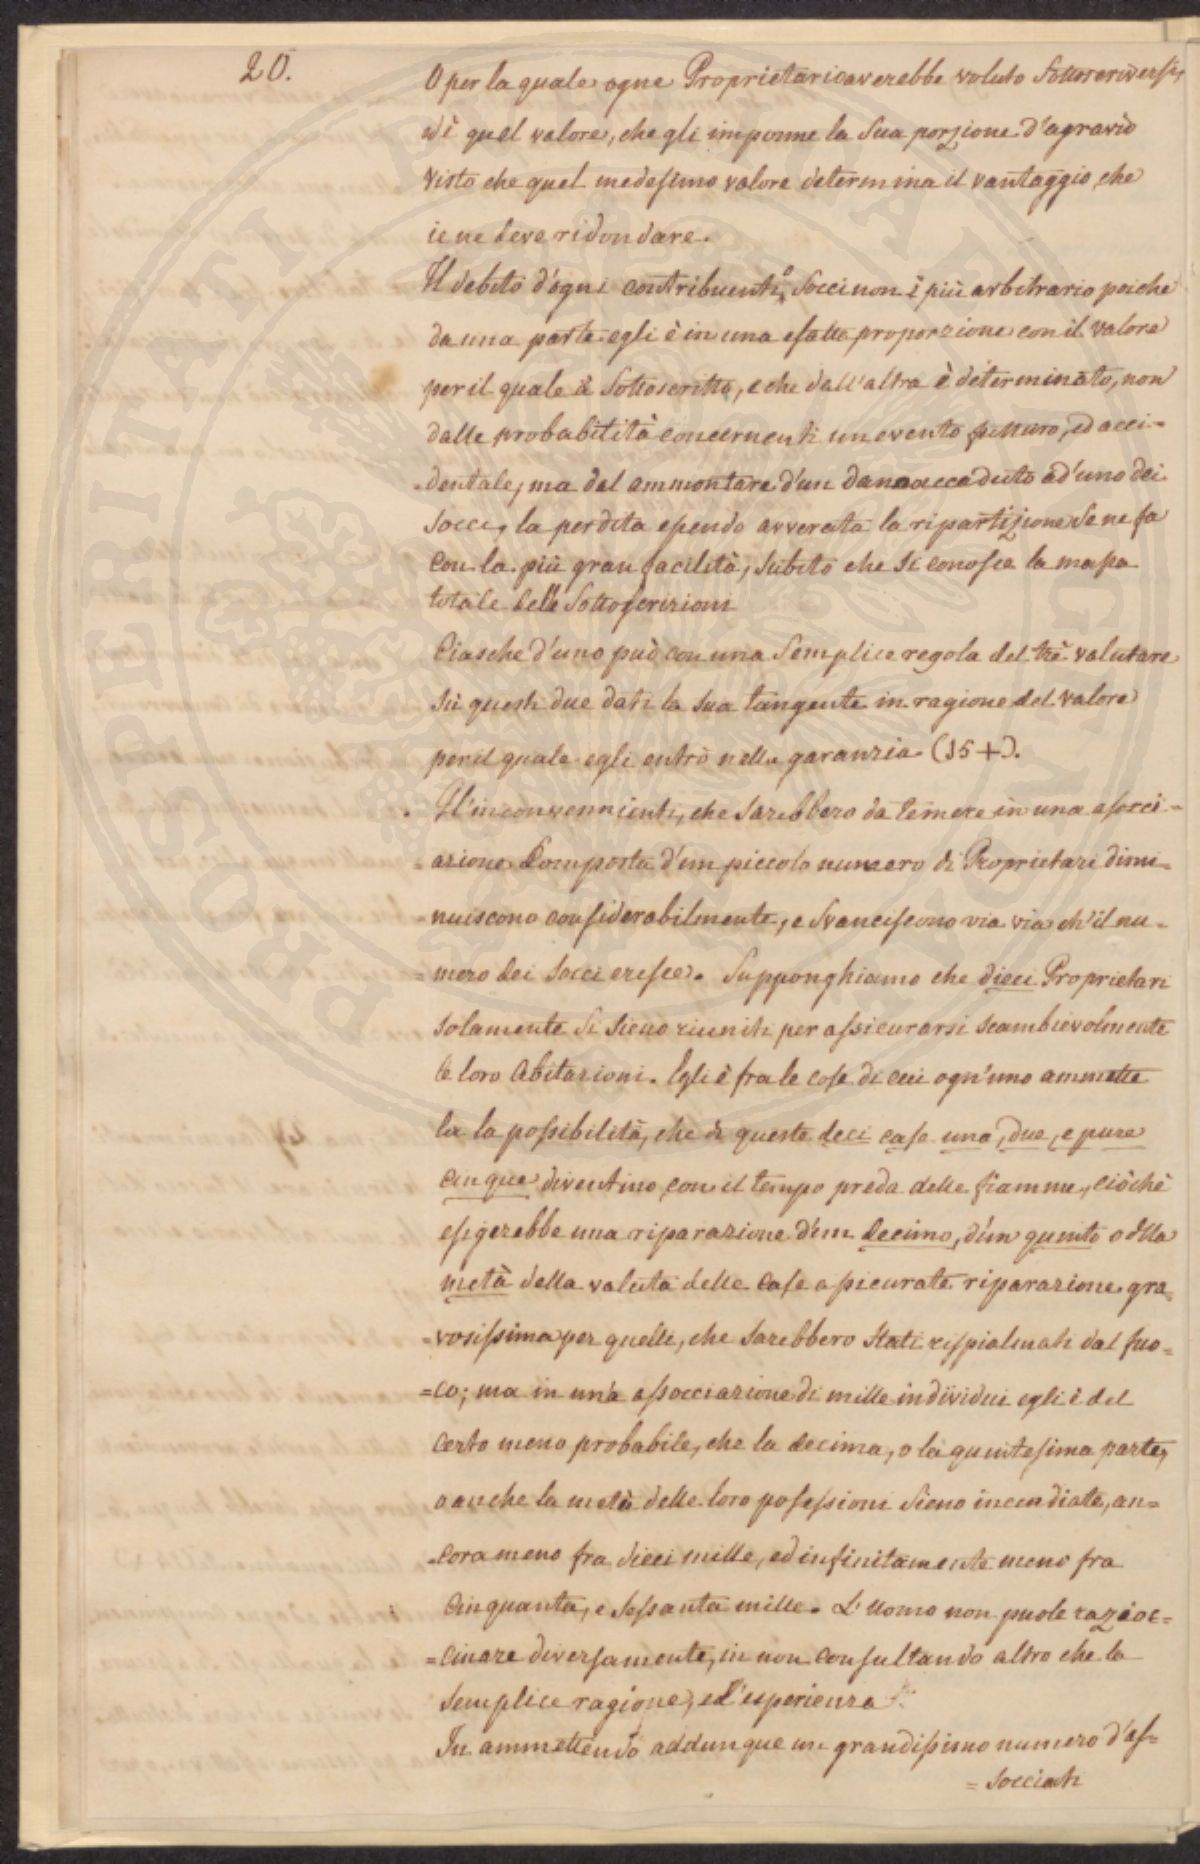 20.
O per la quale ogne Proprietario averebbe voluto Sottoscriversi,
ed è quel valore, che gli impone la Sua porzione d'agravio
Visto che quel medesimo valore determina il vantaggio che
ie ne deve ridondare.
Il debito d'ogni contribuenti, o Socci non è più arbitrario poiche
da una parte egli è in una esatta proporzione con il valore
per il quale à Sottoscritto, e che dall'altra è determinato, non
dalle probabilità concernenti un evento futturo, ed acci-
-dentale, ma dal ammontare d'un danno accaduto ad'uno dei
Socci, la perdita essendo avverata la ripartizione Se ne fa
Con la più gran facilità, Subito che Si conosce la massa
totale delle Sottoscrizioni
Ciasche d'uno può con una Semplice regola del trè valutare
Sù questi due dati la Sua tangente in ragione del valore
per il quale egli entrò nella garanzia (15+).
Gl'inconvennienti, che Sarebbero da temere in una associ=
=azione Composta d'un piccolo numero di Proprietari dimi=
nuiscono considerabilmente, e Svaniscono via via ch'il nu=
=mero dei Socci cresce. Supponghiamo che dieci Proprietari
Solamente Si Sieno riuniti per assicurarsi Scambievolmente
le loro Abitazioni. Egli è fra le cose di cui ogn'uno ammette
la la possibilità, che di queste deci case una, due, e pure
Cinque diventino con il tempo preda delle fiamme, ciòchè
esigerebbe una riparazione d'un decimo, d'un quinto o della
metà della valuta delle Case assicurate riparazione gra=
=vosissima per quelli, che Sarebbero Stati rispialmati dal fuo=
=co; ma in un'a assocciazione di mille individui egli è del
Certo meno probabile, che la decima, o la quintesima parte,
o anche la metà delle loro possessioni Sieno incendiate, an=
=cora meno fra dieci mille, ed infinitamente meno fra
Cinquanta, e Sessanta mille. L'Uomo non puole razioc=
=cinare diversamente, in non consultando altro che la
Semplice ragione, ed l'esperienza.
In ammettendo addunque un grandissimo numero d'as=
=socciati